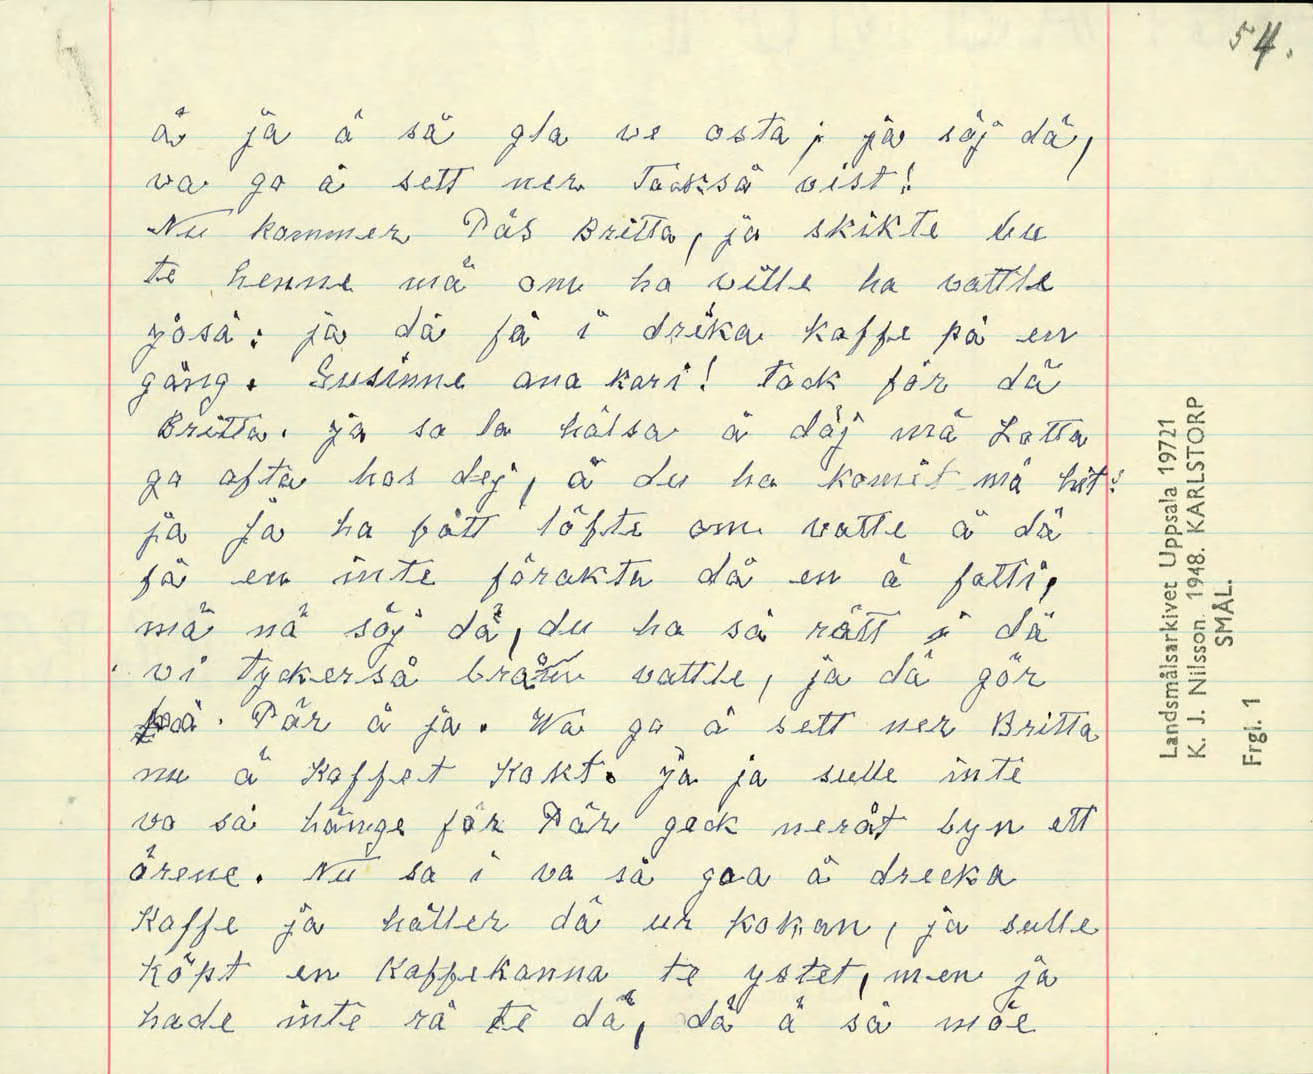 54.
å ja ä så gla ve osta, ja söj dä,
va go å sett ner Tacksä vist!
Nu kommer Päs Britta, ja skikte bu
te henne mä om ho ville ha vattle
josä: ja dä få i dreka kaffe på en
gång. Gusinne ana kari! Tack för dä
Britta. ja sa la hälsa å däj mä Lotta
go ofta hos dej, ä du ha komit mä hit!
ja ja ha fått löfte om vatle ä dä
få en inte förakta då en ä fatti,
mä nä söj dä, du ha så rätt i dä
vi tyckerså bra om vattle, ja dä gör
Pär å ja. Wa go å sett ner Britta
nu ä Kaffet Kokt. ja ja sulle inte
va så länge för Pär geck neråt byn ett
ärene. Nu sa i va så goa å drecka
Kaffe ja häller dä ur kokan, ja sulle
köpt en Kaffekanna te ystet, men ja
hade inte rå te dä, dä ä så möe
Landsmålsarkivet Uppsala 19721
K. J. Nilsson. 1948. KARLSTORP
SMÅL.
Frgl. 1